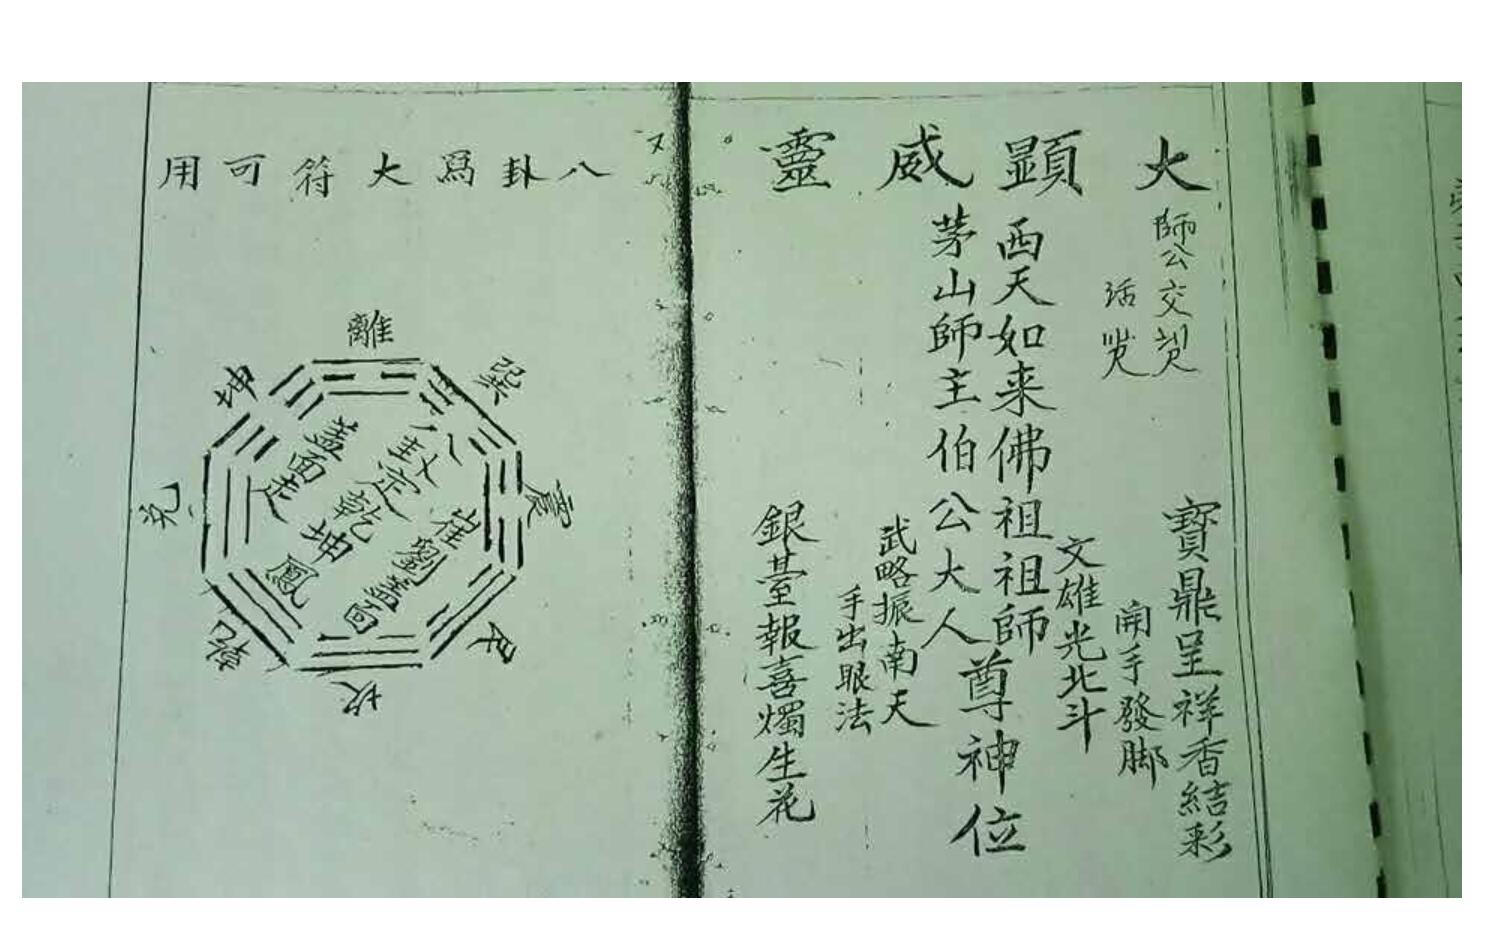 大顯威靈
師公交契
活
寶鼎呈祥香結彩
開手發腳
文雄光北斗
西天如来佛祖祖師
茅山師主伯公大人
尊神位
武略振南天
手出眼法
銀臺報喜燭生花
八卦爲大符可用
離
巽
震
艮
坎
乾
兌
坤
崔劉蓋面
八卦定乾坤
蓋面走鳳